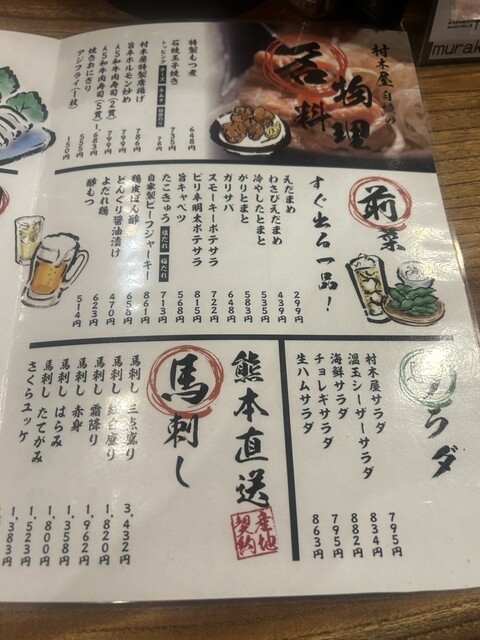 村木屋自慢の
名物料理
特製もつ煮 648円
石焼玉子焼き 735円
村木屋特製唐揚げ 786円
旨辛ホルモン炒め 799円
A5和牛肉寿司(2貫) 799円
A5和牛肉寿司(5貫) 1,683円
焼きおにぎり 555円
アジフライ(一枚) 150円
前菜
すぐ出る一品!
えだまめ 299円
わさびえだまめ 439円
冷やしたとまと 535円
がりとまと 583円
ガリサバ 648円
スモーキーポテサラ 722円
ピリ辛明太ポテサラ 815円
旨キャベツ 568円
たこきゅう 713円
自家製ビーフジャーキー 861円
鶏皮ぽん酢 656円
どんぐり醤油漬け 470円
よだれ鶏 623円
酢もつ 514円
サラダ
村木屋サラダ 795円
温玉シーザーサラダ 834円
海鮮サラダ 882円
チョレギサラダ 795円
生ハムサラダ 863円
熊本直送
産地契約
馬刺し
馬刺し 三点盛り 3,432円
馬刺し 紅白盛り 1,820円
馬刺し 霜降り 1,962円
馬刺し 赤身 1,358円
馬刺し はらみ 1,800円
馬刺し たてがみ 1,523円
さくらユッケ 1,383円
murak